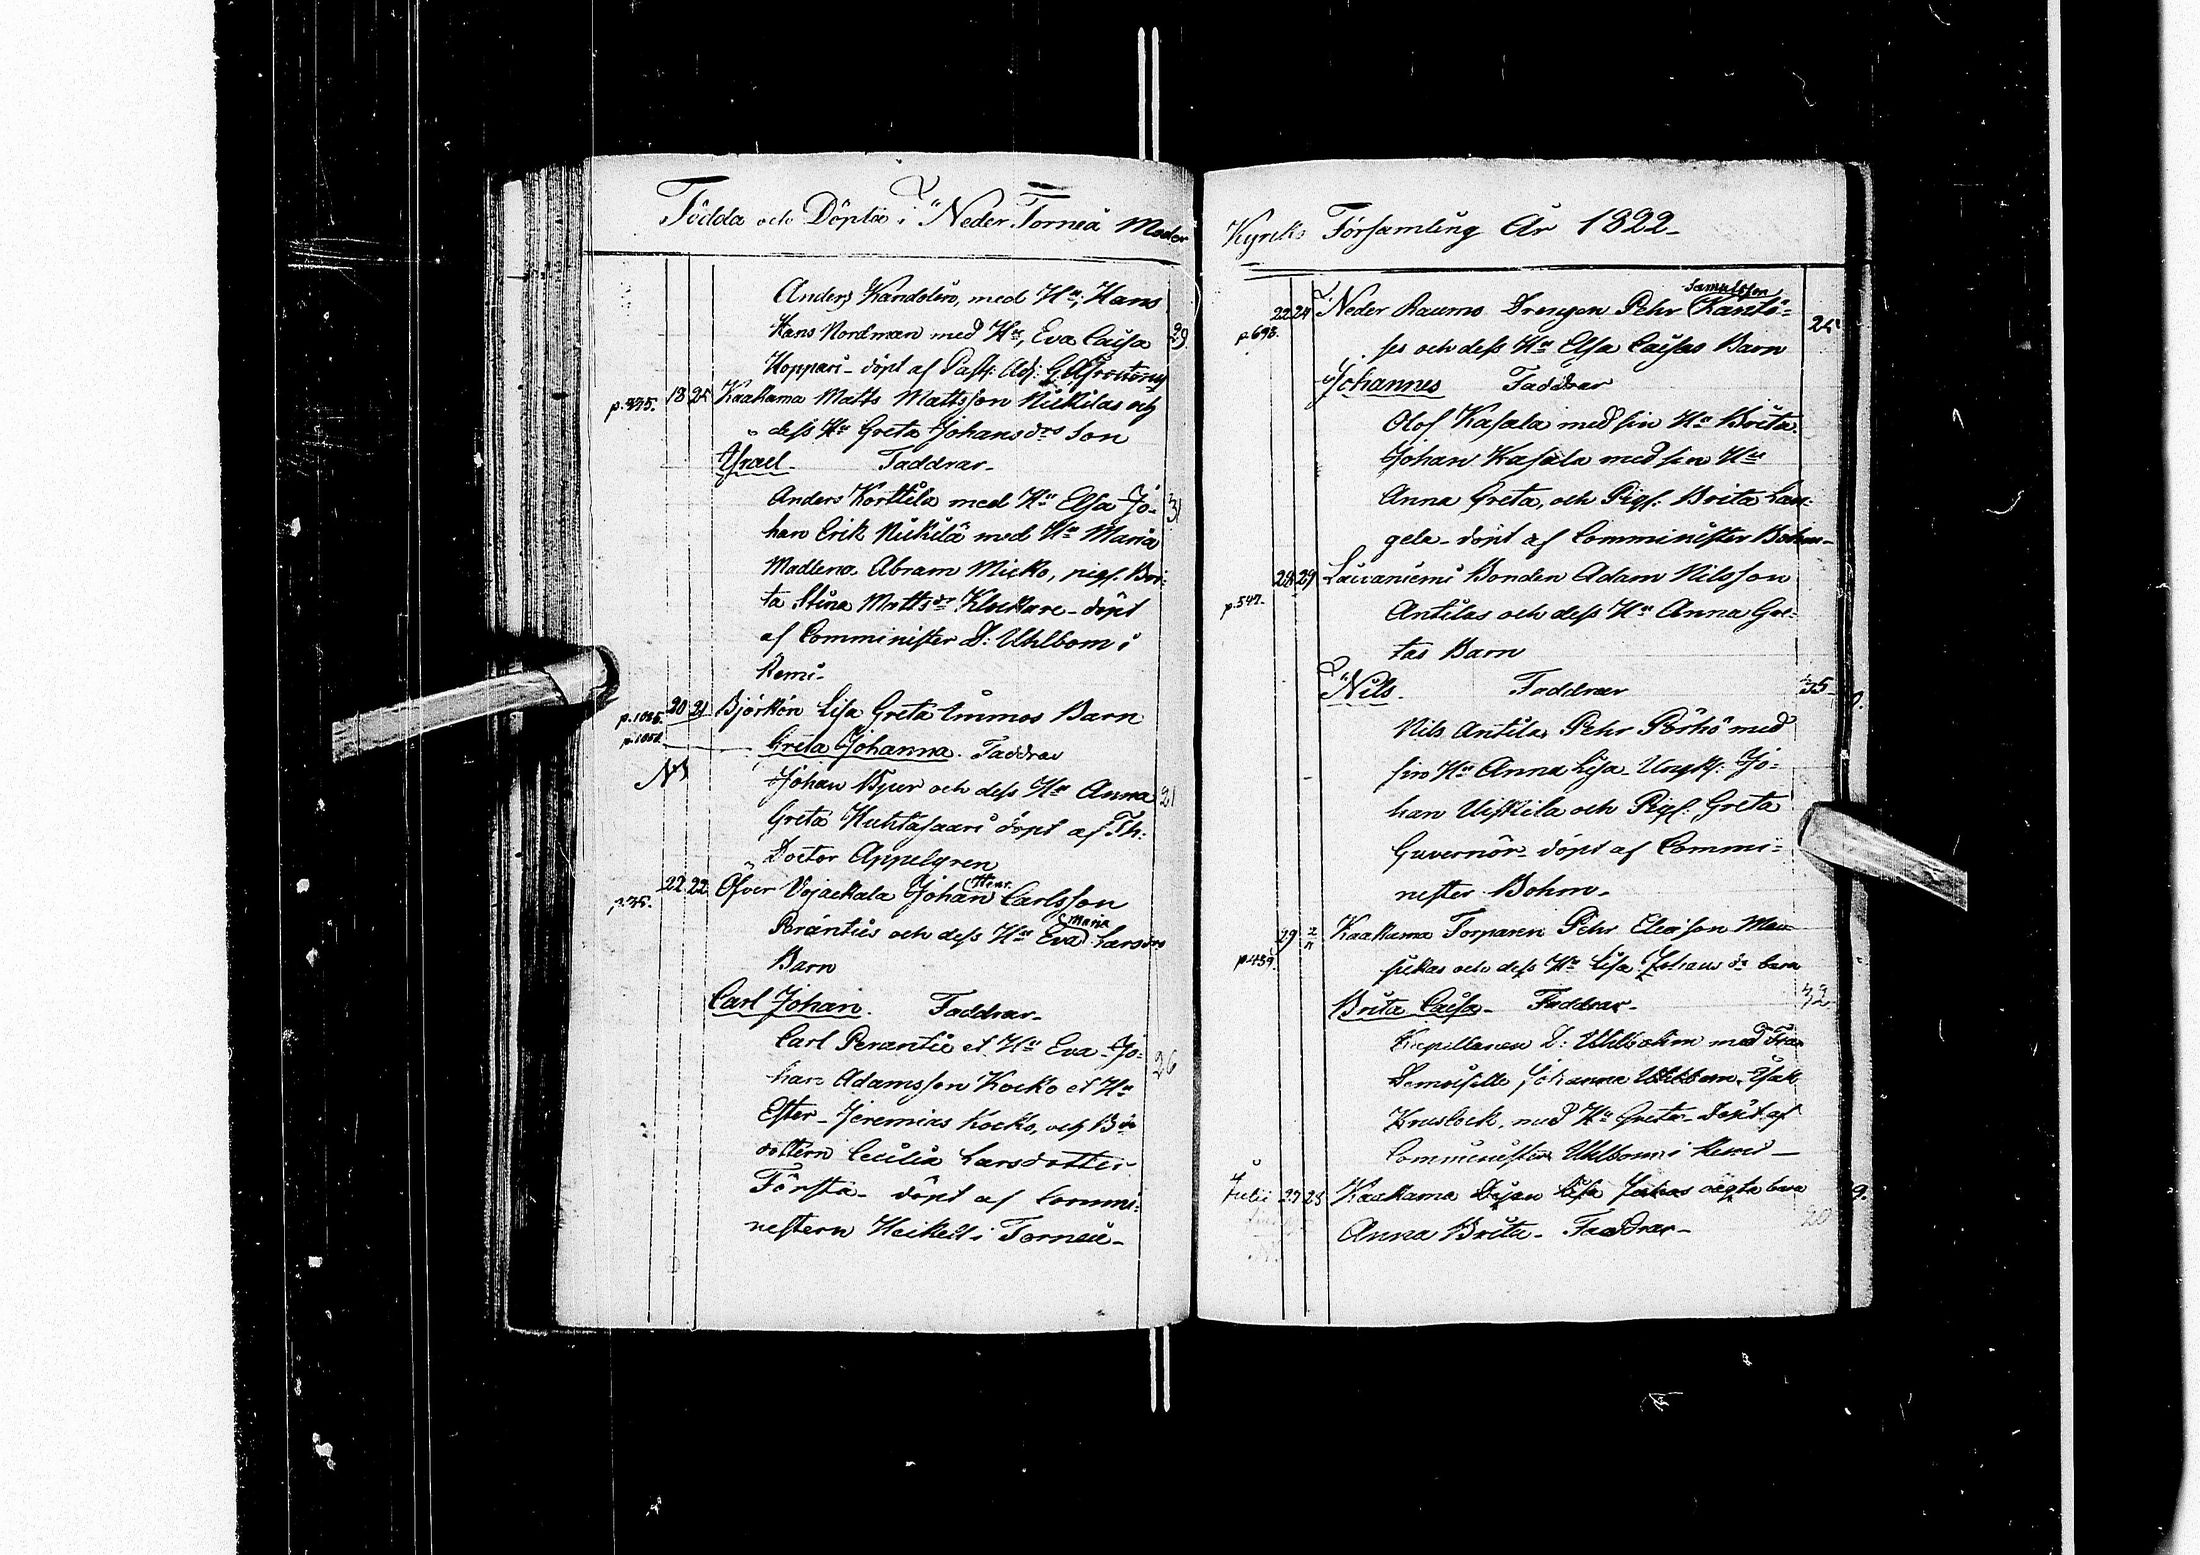 Födda och Döpta i Neder Torneå Moder
Anders Kandelin, med Hu; Hans
Hans Nordman med Hu, Eva Caisa 29
Koppari - döpt af Past: Adj:
p.335. 18 25 Kaakama Matts Mattsson Nikilas och
dess Hu Greta Johansdrs Son
Israel. Faddrar-
Anders Korttila med Hu Elsa Jo- 31
han Erik Nikilä med Hu Maria
Madlena Abram Micko, pigs. Bri-
ta Stina Mattsdr Klockare - döpt
af Comminister D: Uhlbom i
Kemi-
p.1025. 20 21 Björkön Lisa Greta Immos Barn
p.1051. Greta Johanna. Faddrar
Johan och dess Hu Anna 21
Greta Huhtasaari döpt af Th:
Doctor Appelgren
p.35. 22 22 Öfver Vojackala Johan Henr. Carlsson
Peranties och dess Hu Eva Maria Larsdrs
Barn
Carl Johan. Faddrar-
Carl Perantie et Hu Eva - Jo- 26
han Adamsson Kocko et Hu
Ester - Jeremias Kocko, och B
dottern Cecilia Larsdotter
Första - döpt af Commi-
nistern Heikell i Torneå-
Kyrko Församling År 1822-
p.693. 22 24 Neder Raumo Drengen Pehr Samulsson Kantö-
jes och dess Hu Elsa Caisas Barn 25
Johannes Faddrar
Olof Kasala med sin Hu Brita.
Johan Kasala med sin Hu
Anna Greta, och Pigs. Brita Lan-
gela - döpt af Comminister Bohm-
p.547. 28 29 Laivaniemi Bonden Adam Nilsson
Antilas och dess Hu Anna Gre-
tas Barn
Nils. Faddrar 35
Nils Antila, Pehr Pörhö med
sin Hu Anna Lisa - Ungk: Jo-
han Uiskila och Pigs. Greta
Guvernör - döpt af Commi-
nister Bohm-
p.459. 29 Kaakama Torparen Pehr Ericsson Man-
sikas och dess Hu Lisa Johans dr barn
Brita Caisa - Faddrar- 32
Kapellanen D: Uhlbohm med Fru
Demoiselle Johanna Uhlbom, Isak
Kruslock, med Hu Greta - Döpt af
Comministern Uhlbom i Kemi -
Julii 27 28 Kaakama Pigan Lisa oägta barn
Anna Brita - Faddrar- 20